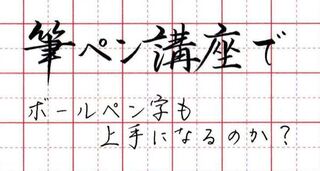 筆ペン講座で
ボールペン字も
上手になるのか？